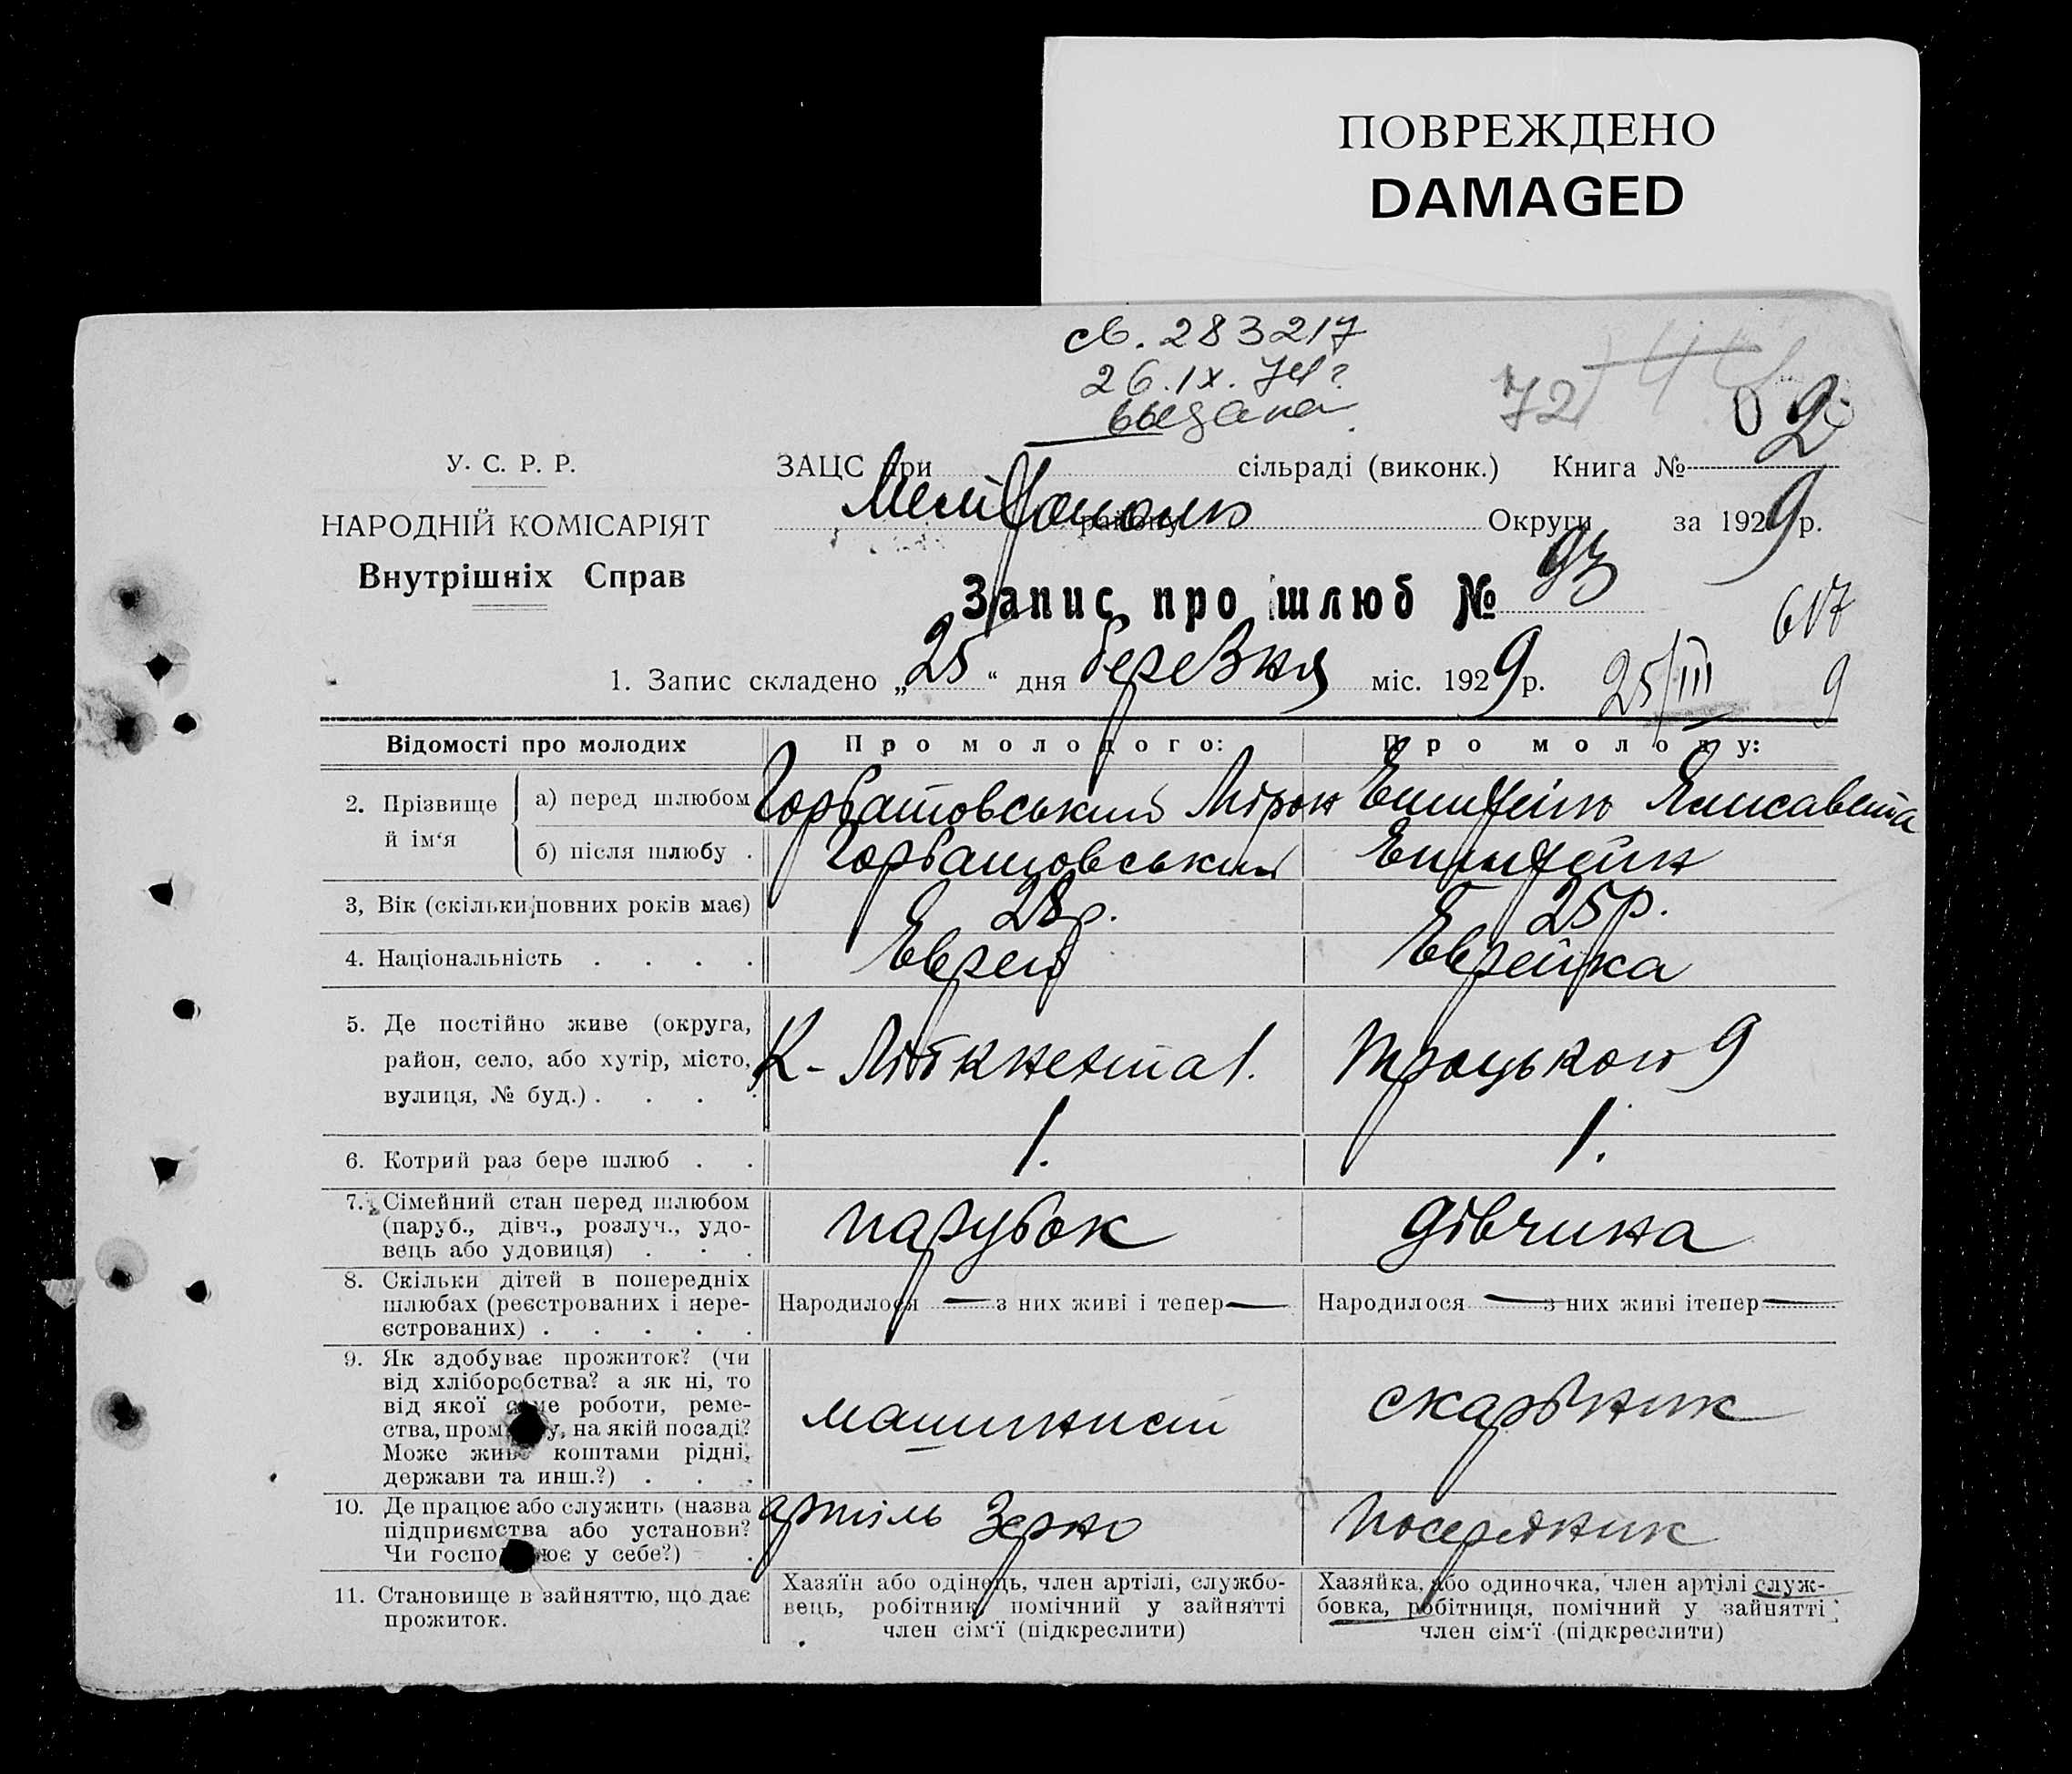 ПОВРЕЖДЕНО
DAMAGED
св. 283217
26.IX.74г
выдана
72
02
У. С. Р. Р.
НАРОДНІЙ КОМІСАРІЯТ
Внутрішніх Справ
ЗАЦС при сільраді (виконк.) Книга № 2
Мелітополь
району Округи за 1929 р.
Запис про шлюб № 93
617
1. Запис складено „25“ дня березня міс. 1929 р. 25/III 9
Відомості про молодих Про молодого: Про молоду:
2. Прізвище й ім‘я а) перед шлюбом Горбатовський Мірон Епштейн Елисавета
б) після шлюбу . Горбатовський Епштейн
3, Вік (скільки повних років має) 28р. 25р.
4. Національність . . . . Еврей Еврейка
5. Де постійно живе (округа,
район, село, або хутір, місто, К-Лібкнехта 1. Троцького 9
вулиця, № буд.) . . . .
6. Котрий раз бере шлюб . . 1. 1.
7. Сімейний стан перед шлюбом
(паруб., дівч., розлуч., удо- парубок дівчина
вець або удовиця) . . .
8. Скільки дітей в попередніх
шлюбах (реєстрованих і нере- Народилося — з них живі і тепер — Народилося — з них живі ітепер —
єстрованих) . . . . .
9. Як здобуває прожиток? (чи
від хліборобства? а як ні, то
від якої саме роботи, реме- машинист скарбник
ства, промислу, на якій посаді?
Може живе коштами рідні,
держави та инш.?) . . .
10. Де працює або служить (назва артіль Зерно посередник
підприємства або установи?
Чи господарює у себе?) .
11. Становище в зайняттю, що дає
прожиток.
Хазяїн або одінець, член артілі, службо-
вець, робітник, помічний у зайнятті
член сім‘ї (підкреслити)
Хазяйка, або одиночка, член артілі служ-
бовка, робітниця, помічний у зайнятті
член сім‘ї (підкреслити)